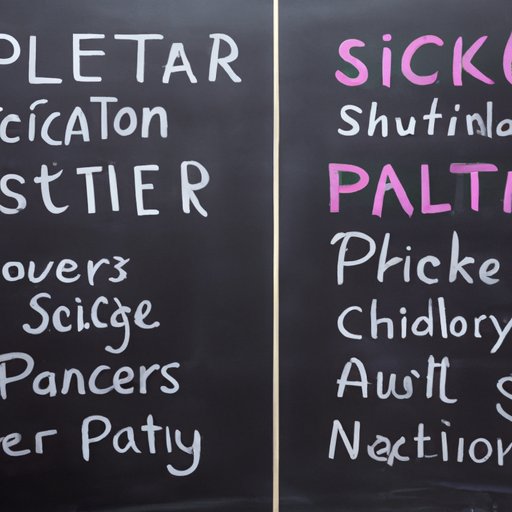 PLETAR
CİCATon
STTIER
overs
Scicge
Pancers
er Patiy
SICK
Shutinla
PALTI
Phicke
Chidlory
Auitl S
Nectior